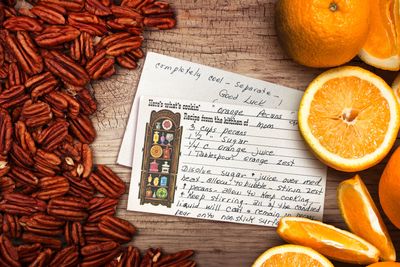 completely cool - separate -
Good Luck
Here's what's cookin' Orange Pecans
Recipe from the kitchen of Mom
3 cups pecans
1 1/2 " sugar
1/4 c. orange juice
1 Tablespoon orange zest
Dissolve sugar + juice over med
heat - allow to bubble - stir in zest
+ pecans - allow to
Dissolve - all of the candied
liquid will coat + remain in pecans
pour onto non-stick surface